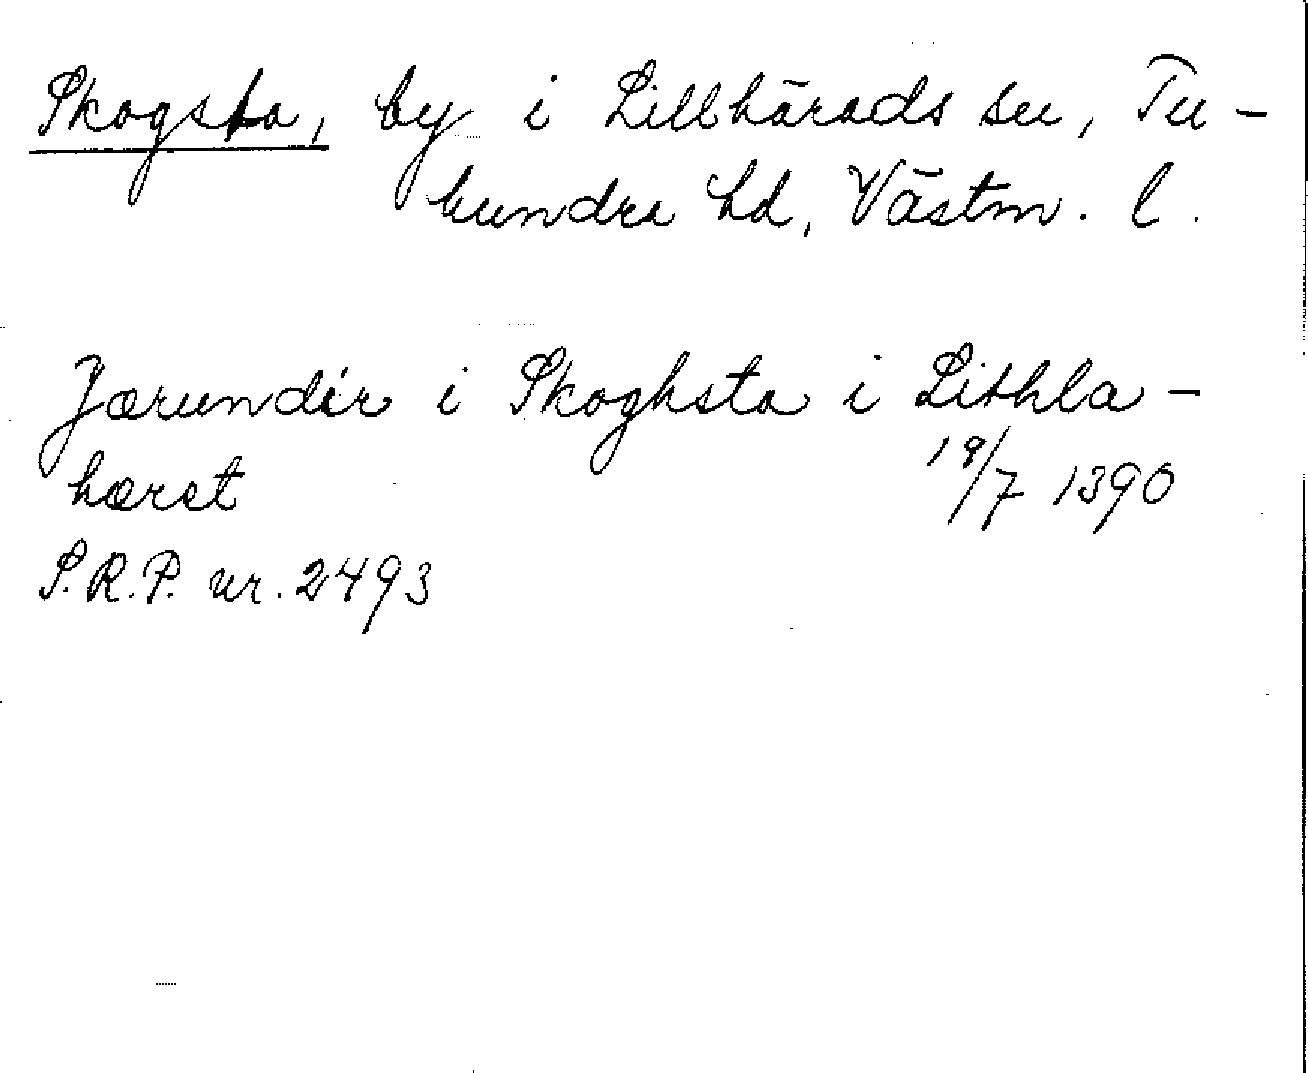 Skogsta, by i Lillhärads sn, Tu-
hundra hd, Västm. l.
Jærundir i Skoghsta i Lithla-
hæret
18/7 1390
S.R.P. nr. 2493